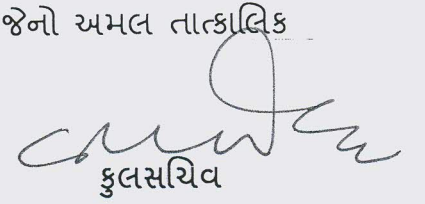 જેનો અમલ તાત્કાલિક
કુલસચિવ